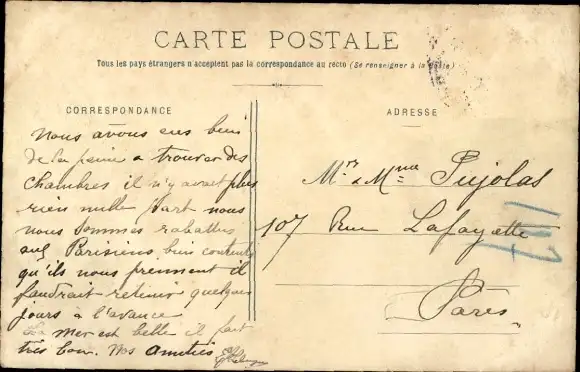 CARTE POSTALE
Tous les pays étrangers n'acceptent pas la correspondance au recto (Se renseigner à la Poste)
CORRESPONDANCE
ADRESSE
Nous avons eus bien
de la peine a trouver des
chambres il n'y avait plus
rien nulle part nous
nous sommes rabattus
aux Parisiens bien contents
qu'ils nous prennent il
faudrait retenir quelques
jours à l'avance
La mer est belle il fait
très bon. Nos Amitiés
Mr & Mme Pujolas
107 Rue Lafayette
Paris